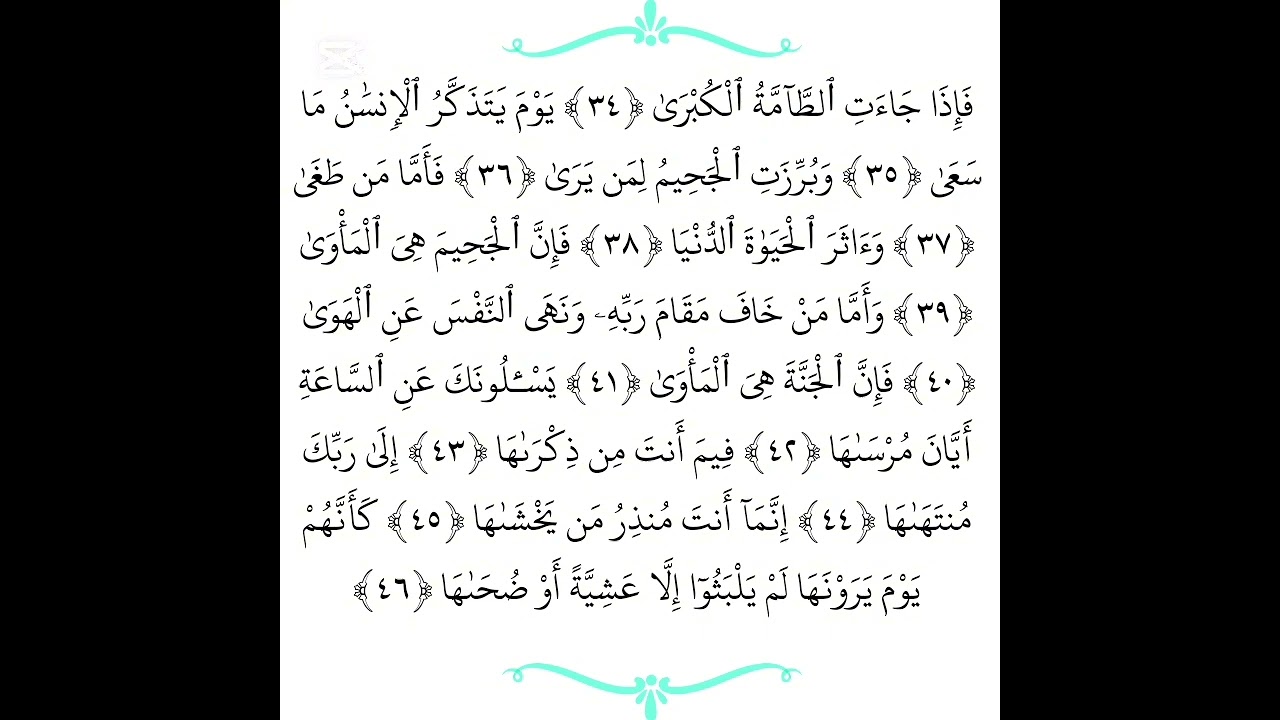 فَإِذَا جَآءَتِ ٱلطَّآمَّةُ ٱلْكُبْرَىٰ ﴿٣٤﴾ يَوْمَ يَتَذَكَّرُ ٱلْإِنسَٰنُ مَا
سَعَىٰ ﴿٣٥﴾ وَبُرِّزَتِ ٱلْجَحِيمُ لِمَن يَرَىٰ ﴿٣٦﴾ فَأَمَّا مَن طَغَىٰ
﴿٣٧﴾ وَءَاثَرَ ٱلْحَيَوٰةَ ٱلدُّنْيَا ﴿٣٨﴾ فَإِنَّ ٱلْجَحِيمَ هِىَ ٱلْمَأْوَىٰ
﴿٣٩﴾ وَأَمَّا مَنْ خَافَ مَقَامَ رَبِّهِۦ وَنَهَى ٱلنَّفْسَ عَنِ ٱلْهَوَىٰ
﴿٤٠﴾ فَإِنَّ ٱلْجَنَّةَ هِىَ ٱلْمَأْوَىٰ ﴿٤١﴾ يَسْـَٔلُونَكَ عَنِ ٱلسَّاعَةِ
أَيَّانَ مُرْسَىٰهَا ﴿٤٢﴾ فِيمَ أَنتَ مِن ذِكْرَىٰهَا ﴿٤٣﴾ إِلَىٰ رَبِّكَ
مُنتَهَىٰهَا ﴿٤٤﴾ إِنَّمَآ أَنتَ مُنذِرُ مَن يَخْشَىٰهَا ﴿٤٥﴾ كَأَنَّهُمْ
يَوْمَ يَرَوْنَهَا لَمْ يَلْبَثُوٓا۟ إِلَّا عَشِيَّةً أَوْ ضُحَىٰهَا ﴿٤٦﴾